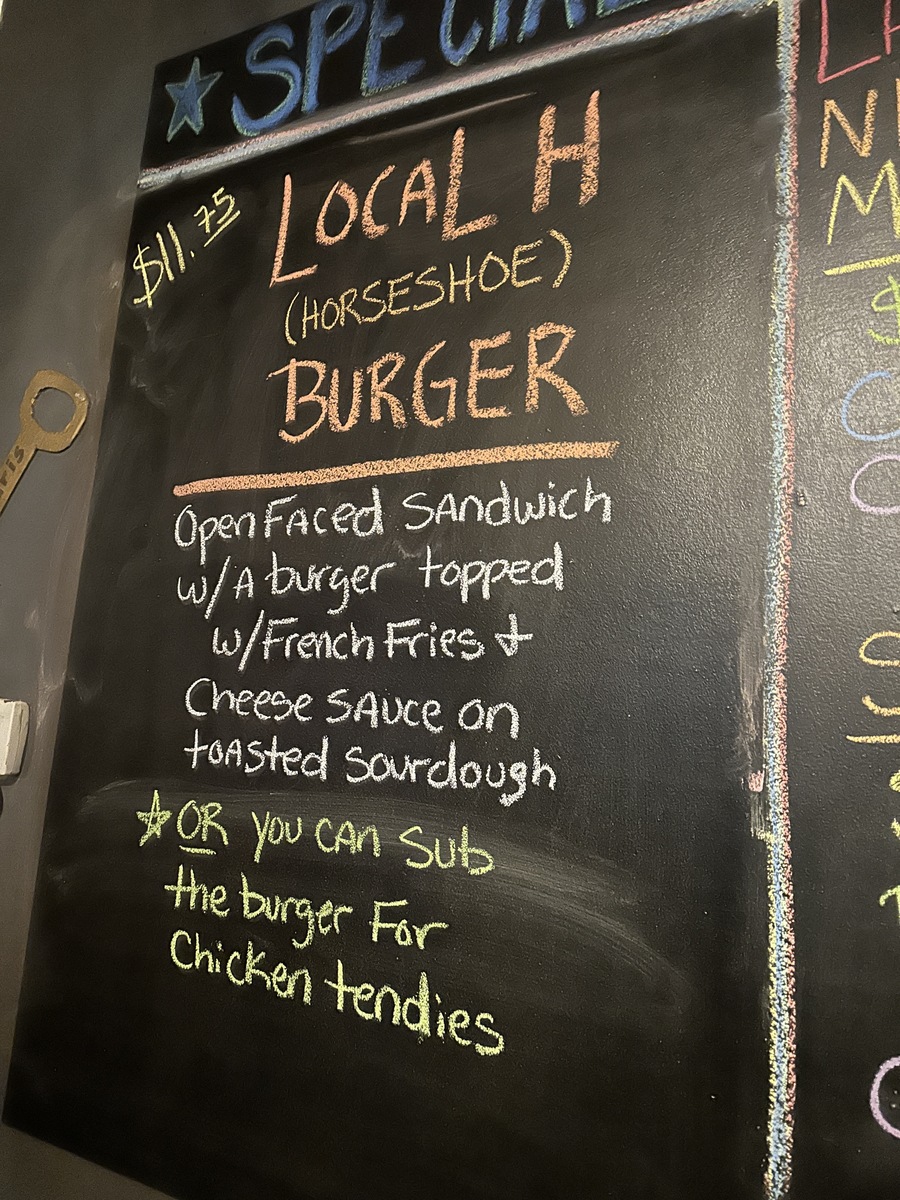 SPECIAL
$11.75
LOCAL H
(HORSESHOE)
BURGER
Open Faced Sandwich
w/A burger topped
w/French Fries &
Cheese SAuce on
toAsted Sourdough
OR you CAN Sub
the burger For
Chicken tendies